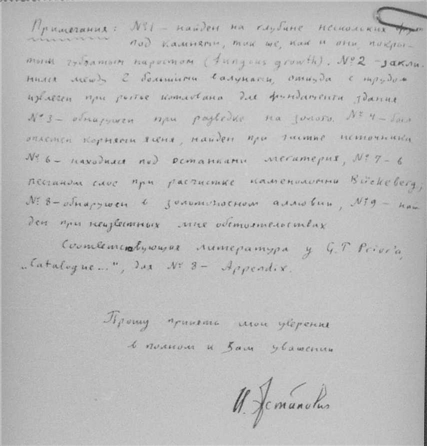 Примечания: № 1 - найден на глубине нескольких
под камнями, так же, как и они, покры-
тым губчатым наростом (fungus growth). № 2 - закли-
нился между 2 большими валунами, откуда с трудом
извлечен при рытье котлована для фундамента здания
№ 3 - обнаружен при разведке на золото. № 4 - был
оплетен корнями ясеня, найден при чистке источника
№ 6 - находился под останками мегатерия, № 7 - в
песчаном слое при расчистке каменоломни Bückeberg,
№ 8 - обнаружен в золотоносном аллювии, № 9 - най-
ден при неизвестных мне обстоятельствах
Соответствующая литература у G. T. Prior'a,
„Catalogue...", для № 8 - Appendix.
Прошу принять мои уверения
в полном к Вам уважении
И. Астапович